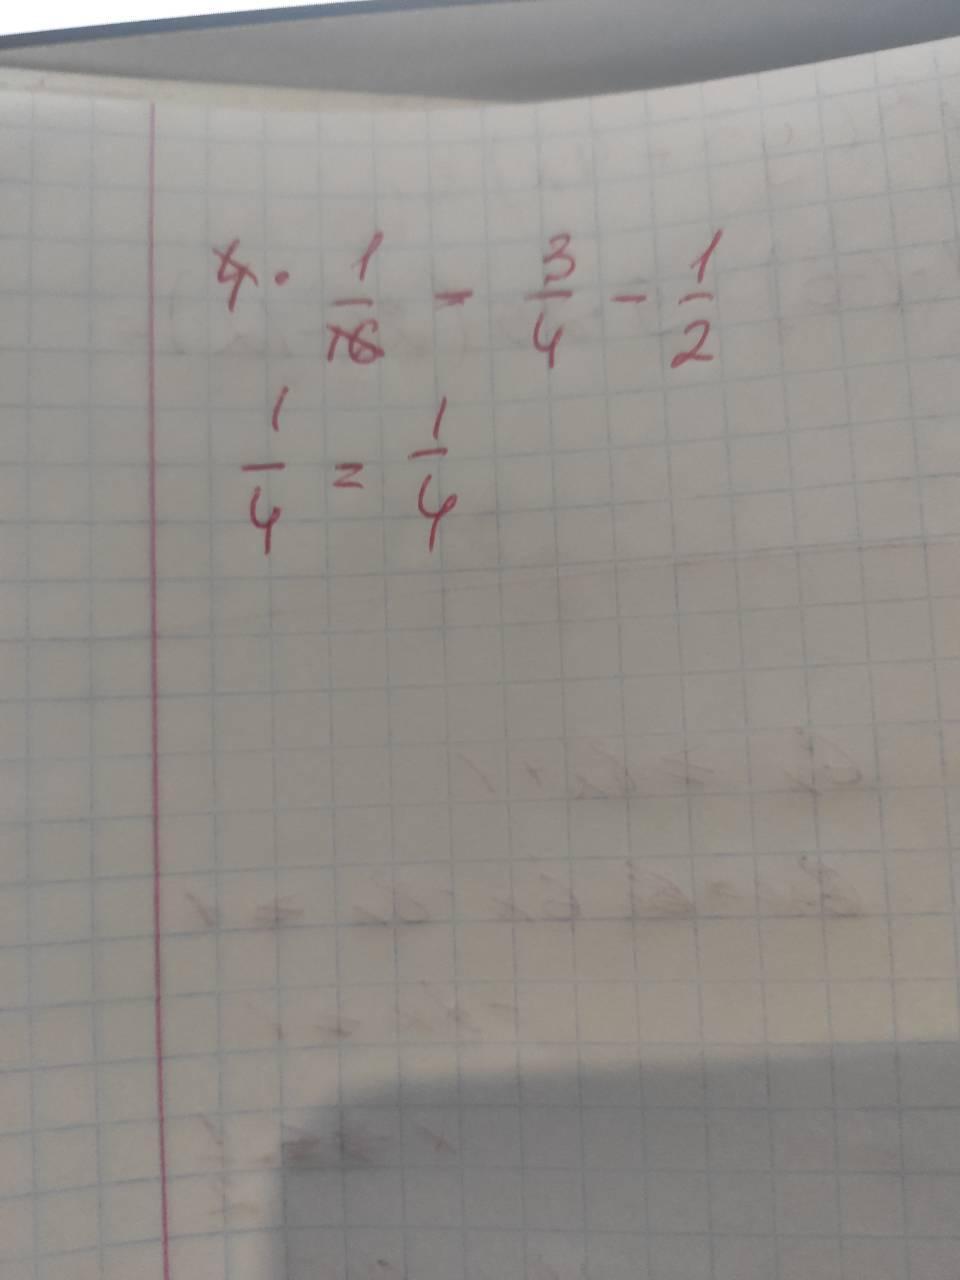 4 · 1/16 = 3/4 - 1/2
1/4 = 1/4